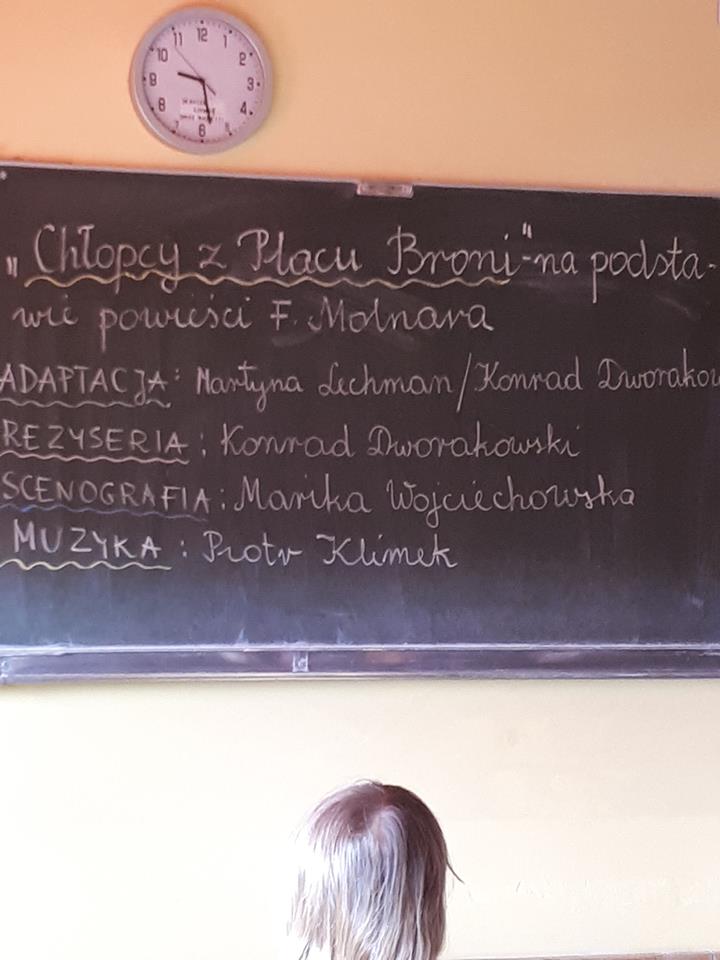 11 12 1
10 2
9 3
8 4
7 6 5
„Chłopcy z Placu Broni"-na podsta-
wie powieści F. Molnara
ADAPTACJA: Martyna Lechman/Konrad Dworakow
REŻYSERIA: Konrad Dworakowski
SCENOGRAFIA: Marika Wojciechowska
MUZYKA: Piotr Klimek